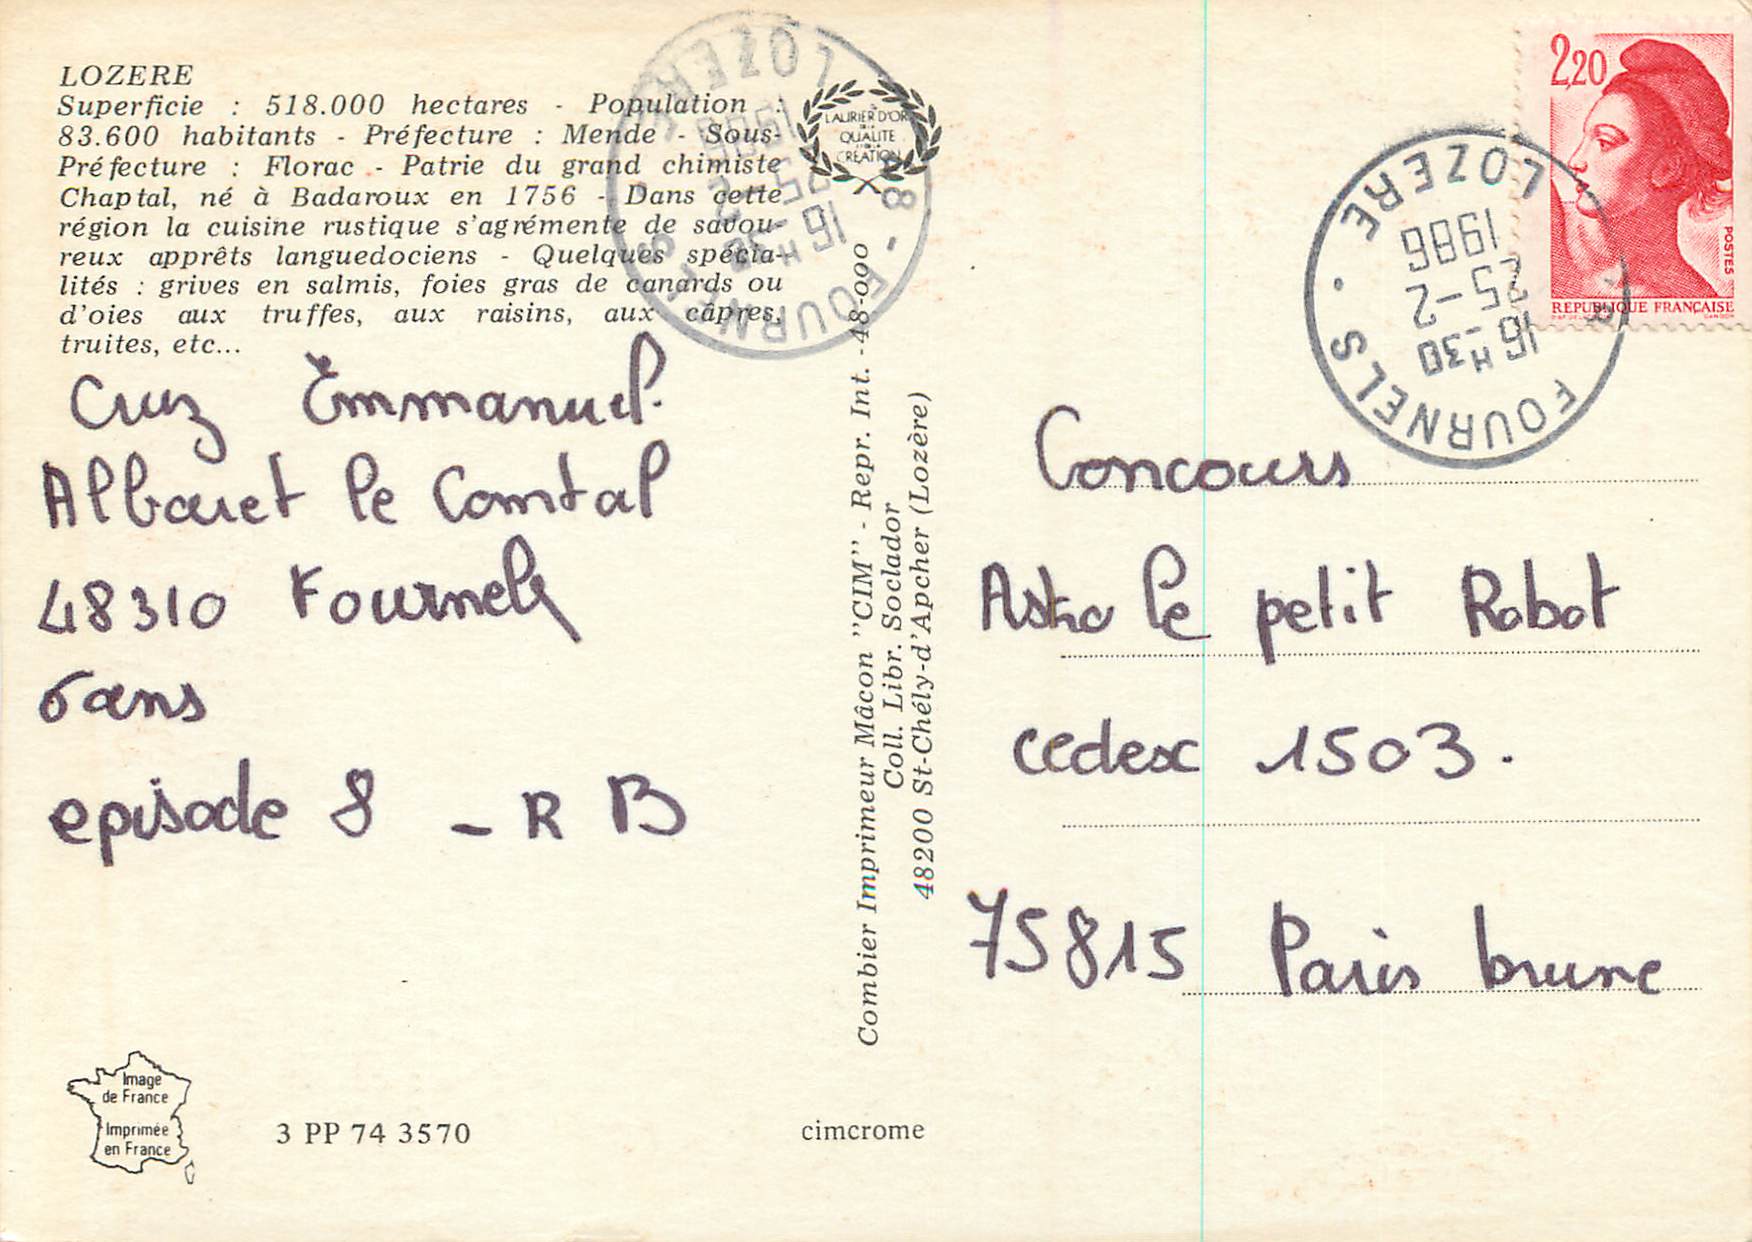 LOZERE
Superficie : 518.000 hectares - Population :
83.600 habitants - Préfecture : Mende - Sous-
Préfecture : Florac - Patrie du grand chimiste
Chaptal, né à Badaroux en 1756 - Dans cette
région la cuisine rustique s'agrémente de savou-
reux apprêts languedociens - Quelques spécia-
lités : grives en salmis, foies gras de canards ou
d'oies aux truffes, aux raisins, aux câpres,
truites, etc...
Cruz Emmanuel.
Albaret le Comtal
48310 Fournels
6 ans
episode 8 - R B
Image
de France
Imprimée
en France
3 PP 74 3570
cimcrome
LAURIER D'OR
DE LA
QUALITE
CREATION
Combier Imprimeur Mâcon "CIM" - Repr. Int. - 48-000
Coll. Libr. Soclador
48200 St-Chély-d'Apcher (Lozère)
48 - FOURNELS
LOZERE
16 H 30
25-2
1986
FOURNELS
LOZERE
16 H 30
25-2
1986
2,20
POSTES
REPUBLIQUE FRANÇAISE
GANDON
Concours
Astro le petit Robot
cedex 1503.
75815 Paris brune